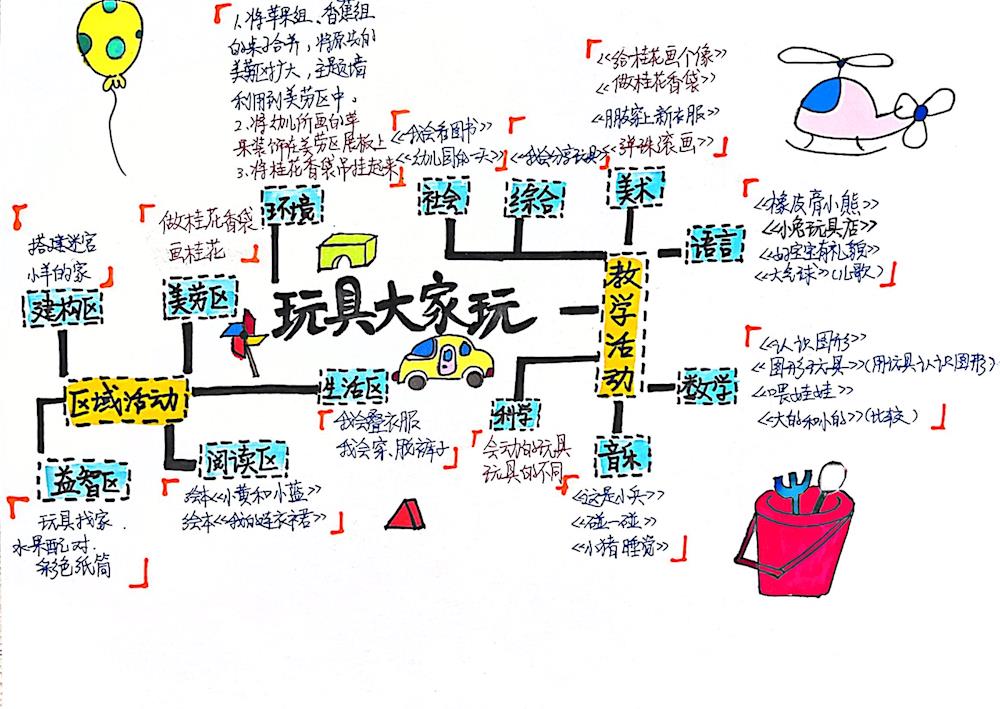 1.将苹果组、香蕉组
的桌子合并,将原先的
美劳区扩大,主题墙
利用到美劳区中。
2.将幼儿所画的苹
果装饰在美劳区展板上
3.将桂花香袋吊挂起来
环境
<<我会看图书>>
<<幼儿园的一天>>
社会
<<我会分享玩具>>
综合
<<给桂花画个像>>
<<做桂花香袋>>
<<朋友穿上新衣服>>
<<弹珠滚画>>
美术
语言
<<橡皮膏小熊>>
<<小兔玩具店>>
<<的宝宝有礼貌>>
<<大气球>>(儿歌)
搭建迷宫
小羊的家
建构区
做桂花香袋
画桂花
美劳区
玩具大家玩
教学活动
区域活动
生活区
我会叠衣服
我会穿、脱裤子
科学
会动的玩具
玩具的不同
数学
<<认识图形>>
<<图形与玩具>>(用玩具认识图形)
<<喂娃娃>>
<<大的和小的>>(比较)
益智区
玩具找家.
水果配对.
彩色纸筒
阅读区
绘本<<小黄和小蓝>>
绘本<<我的连衣裙>>
音乐
<<这是小兵>>
<<碰一碰>>
<<小猪睡觉>>